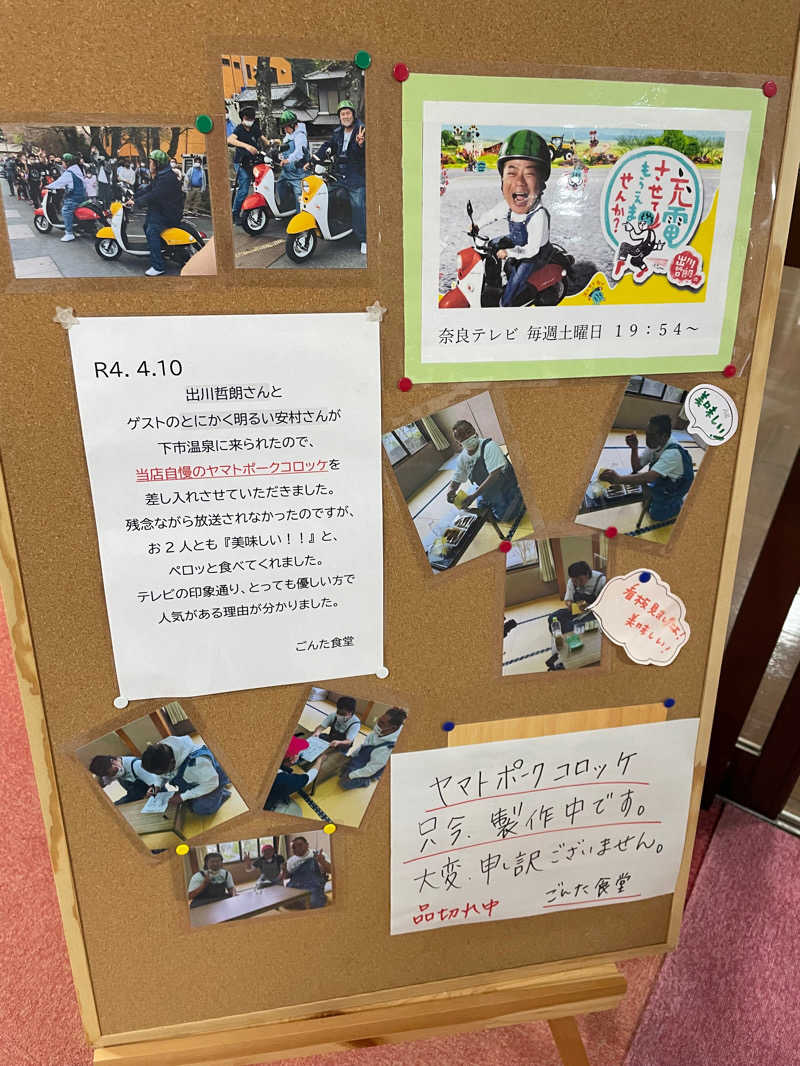 充電
させて
もらえま
せんか?
出川
哲朗の
奈良テレビ 毎週土曜日 19:54〜
R4. 4.10
出川哲朗さんと
ゲストのとにかく明るい安村さんが
下市温泉に来られたので、
当店自慢のヤマトポークコロッケを
差し入れさせていただきました。
残念ながら放送されなかったのですが、
お2人とも『美味しい!!』と、
ペロッと食べてくれました。
テレビの印象通り、とっても優しい方で
人気がある理由が分かりました。
ごんた食堂
美味しい!
看板見ましたよ!
美味しい!
ヤマトポークコロッケ
只今、製作中です。
大変、申し訳ございません。
品切れ中 ごんた食堂